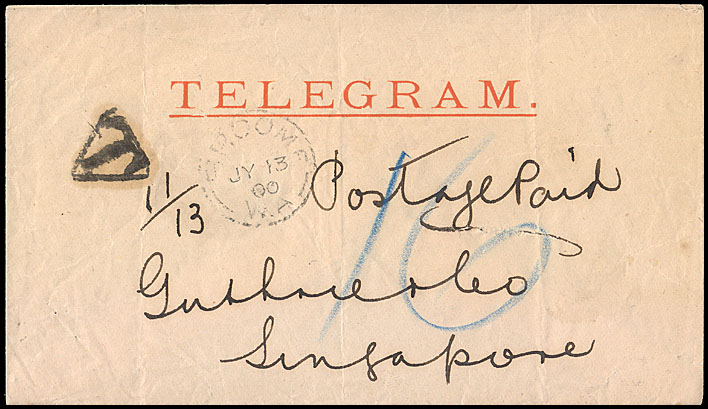 TELEGRAM.
BROOME
JY 13
00
W.A
11/13
Postage Paid
16
Guthrie & Co
Singapore